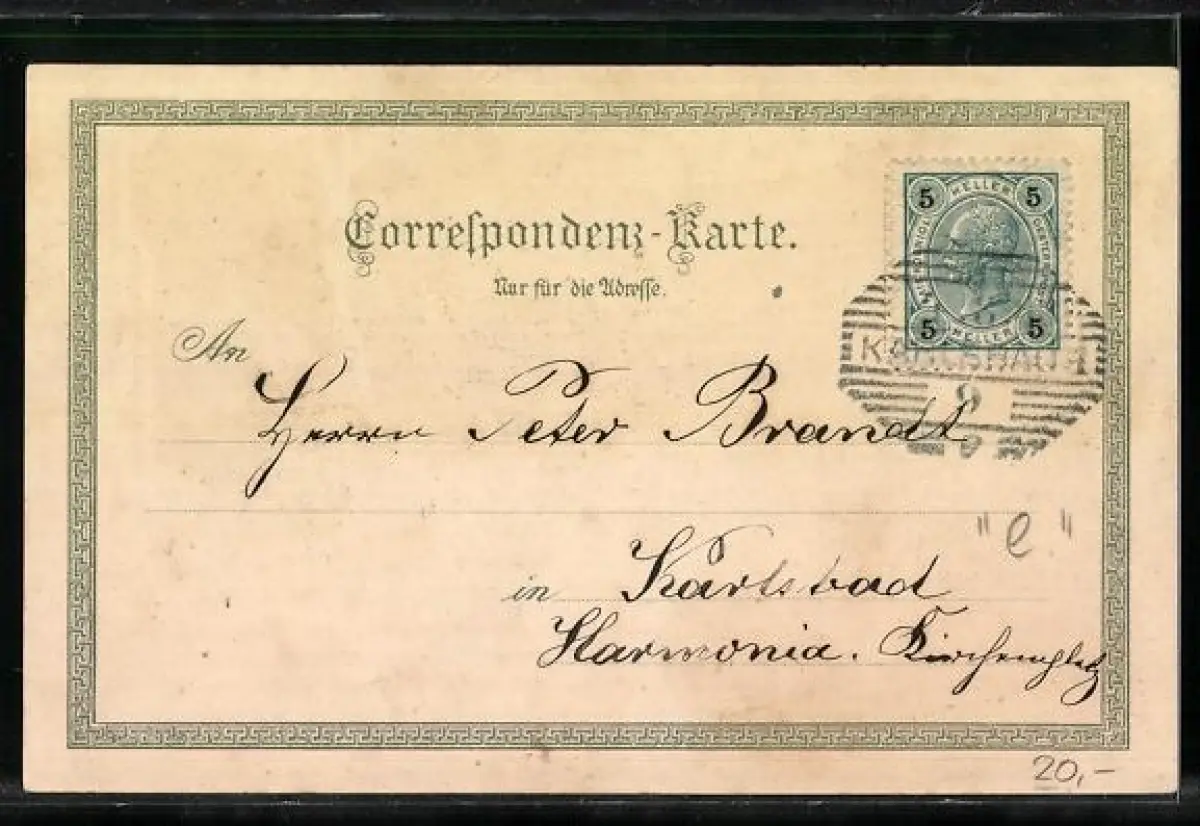 Correspondenz-Karte.
Nur für die Adresse.
5 HELLER 5
5 HELLER 5
An
Herrn Peter Brandt
"e."
in Karlsbad
Harmonia. Kirchenplatz
20,-